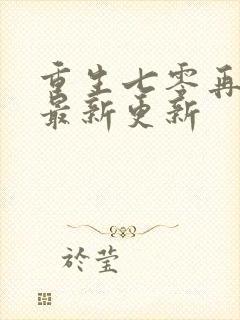 重生七零再
最新更新
於莹